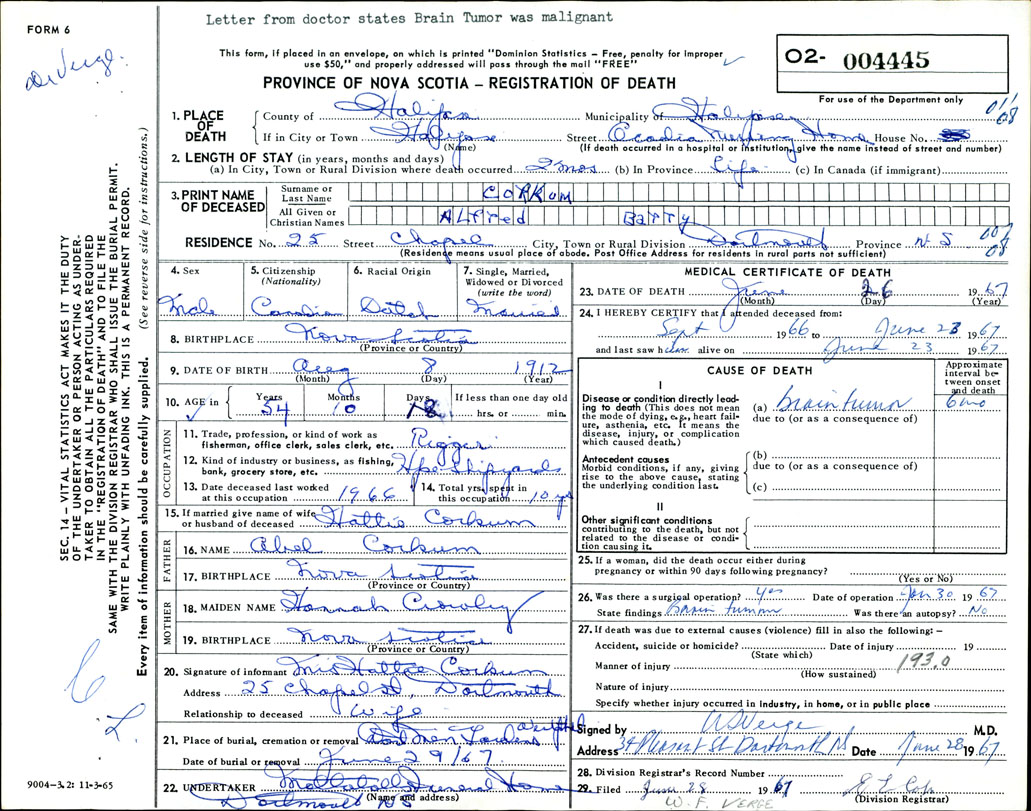 Letter from doctor states Brain Tumor was malignant
FORM 6
DeVerge.
This form, if placed in an envelope, on which is printed "Dominion Statistics – Free, penalty for improper
use $50," and properly addressed will pass through the mail "FREE"
O2- 004445
For use of the Department only
PROVINCE OF NOVA SCOTIA – REGISTRATION OF DEATH
1. PLACE OF DEATH
County of Halifax Municipality of Halifax
If in City or Town Halifax Street Acadia Nursing Home House No.
(Name) (If death occurred in a hospital or institution, give the name instead of street and number)
2. LENGTH OF STAY (in years, months and days)
(a) In City, Town or Rural Division where death occurred 2 mos (b) In Province Life (c) In Canada (if immigrant)
3. PRINT NAME OF DECEASED
Surname or Last Name CORKUM
All Given or Christian Names ALFred BARRY
RESIDENCE No. 25 Street Chapel City, Town or Rural Division Dartmouth Province N S
(Residence means usual place of abode. Post Office Address for residents in rural parts not sufficient)
4. Sex Male
5. Citizenship (Nationality) Canadian
6. Racial Origin Dutch
7. Single, Married, Widowed or Divorced (write the word) Married
8. BIRTHPLACE Nova Scotia
(Province or Country)
9. DATE OF BIRTH Aug 8 1912
(Month) (Day) (Year)
10. AGE in Years 54 Months 10 Days 18 If less than one day old hrs. or min.
OCCUPATION
11. Trade, profession, or kind of work as fisherman, office clerk, sales clerk, etc. Rigger
12. Kind of industry or business, as fishing, bank, grocery store, etc. Hfx Shipyards
13. Date deceased last worked at this occupation 1966
14. Total yrs. spent in this occupation 10 yrs
15. If married give name of wife or husband of deceased Hattie Corkum
FATHER
16. NAME Abel Corkum
17. BIRTHPLACE Nova Scotia
(Province or Country)
MOTHER
18. MAIDEN NAME Hannah Crowley
19. BIRTHPLACE Nova Scotia
(Province or Country)
20. Signature of informant Mrs Hattie Corkum
Address 25 Chapel St, Dartmouth
Relationship to deceased Wife
21. Place of burial, cremation or removal Gardens
Date of burial or removal June 29/67
22. UNDERTAKER Funeral Home
(Name and address)
Dartmouth NS
MEDICAL CERTIFICATE OF DEATH
23. DATE OF DEATH June 26 1967
(Month) (Day) (Year)
24. I HEREBY CERTIFY that I attended deceased from:
Sept 1966 to June 23 1967
and last saw him alive on June 23 1967
CAUSE OF DEATH
Approximate interval between onset and death
I
Disease or condition directly leading to death (This does not mean the mode of dying, e.g., heart failure, asthenia, etc. It means the disease, injury, or complication which caused death.)
(a) brain tumor 6 mo
due to (or as a consequence of)
Antecedent causes
Morbid conditions, if any, giving rise to the above cause, stating the underlying condition last.
(b)
due to (or as a consequence of)
(c)
II
Other significant conditions
contributing to the death, but not related to the disease or condition causing it.
25. If a woman, did the death occur either during pregnancy or within 90 days following pregnancy?
(Yes or No)
26. Was there a surgical operation? yes Date of operation Jan 30 1967
State findings Brain tumour Was there an autopsy? No
27. If death was due to external causes (violence) fill in also the following: –
Accident, suicide or homicide? Date of injury 19
(State which)
Manner of injury 193.0
(How sustained)
Nature of injury
Specify whether injury occurred in industry, in home, or in public place
Signed by M.D.
Address 34 Pleasant St Dartmouth NS Date June 28 1967
28. Division Registrar's Record Number
29. Filed June 28 1967
(Division Registrar)
W. F. VERGE
SEC. 14 – VITAL STATISTICS ACT MAKES IT THE DUTY
OF THE UNDERTAKER OR PERSON ACTING AS UNDER-
TAKER TO OBTAIN ALL THE PARTICULARS REQUIRED
IN THE "REGISTRATION OF DEATH" AND TO FILE THE
SAME WITH THE DIVISION REGISTRAR WHO SHALL ISSUE THE BURIAL PERMIT.
WRITE PLAINLY WITH UNFADING INK. THIS IS A PERMANENT RECORD.
Every item of information should be carefully supplied. (See reverse side for instructions.)
9004-3.2: 11-3-65